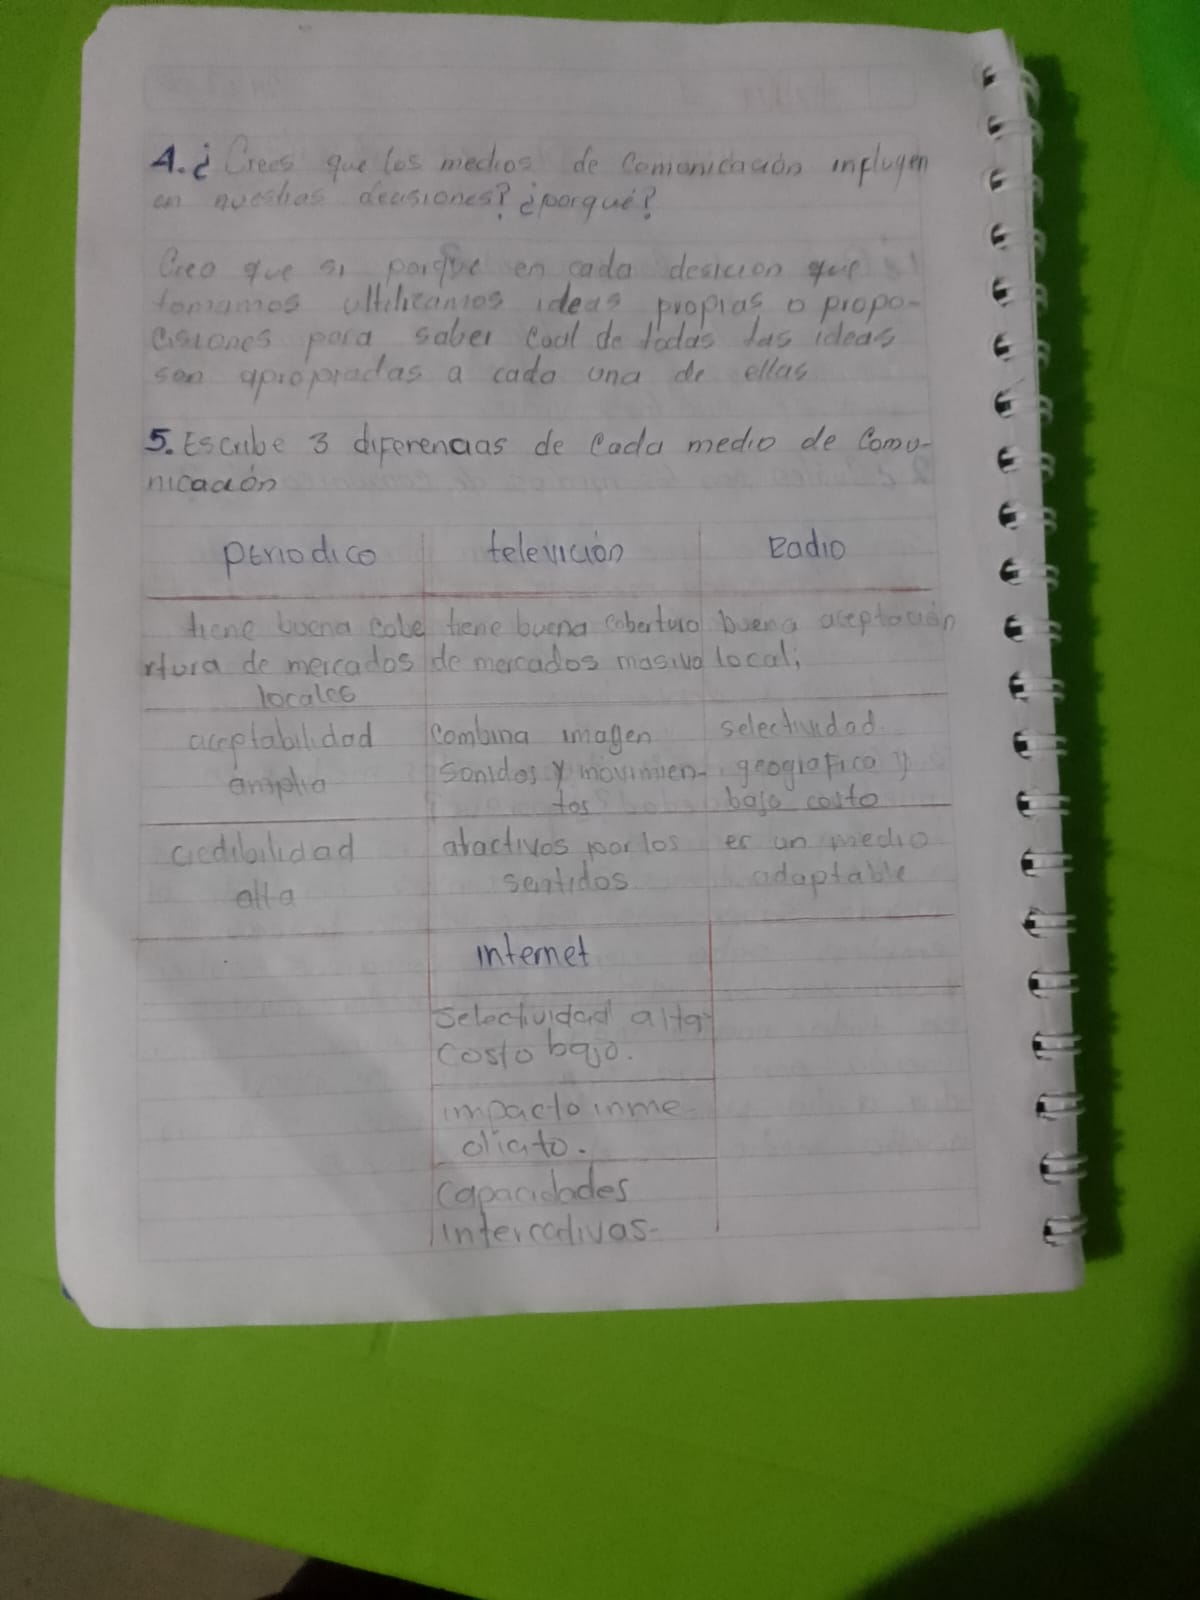 4. ¿Crees que los medios de Comonicación influyen
en nuestras decisiones? ¿porqué?
Creo que si porque en cada desicion que
tomamos ultilizamos ideas propias o propo-
cisiones para saber cual de todas las ideas
son apropiadas a cada una de ellas
5. Escribe 3 diferencias de Cada medio de Comu-
nicación
periodico televición Radio
tiene buena Cobe tiene buena cobertura buena aceptación
rtura de mercados de mercados masivo local;
locales
aceptabilidad Combina imagen selectividad
amplia sonidos y movimien- geografica y
tos bajo costo
credibilidad atactivos por los es un medio
alta sentidos adaptable
internet
Selectividad alta
Costo bajo.
impacto inme
diato.
Capacidades
intercativas-